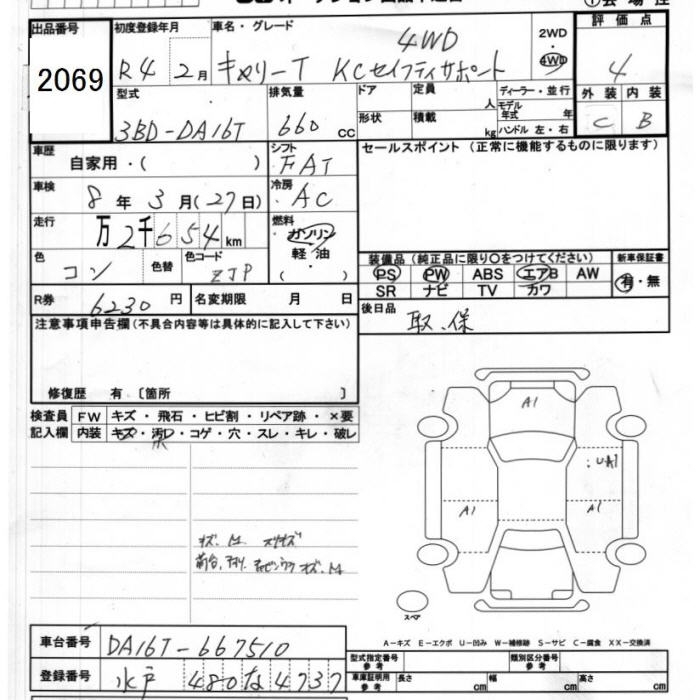 出品番号 初度登録年月 車名・グレード 4WD 2WD・4WD 評価点
2069 R4 2月 キャリーT KCセイフティサポート 4
型式 排気量 ドア 定員 人 ディーラー・並行 外装 内装
3BD-DA16T 660 cc 形状 積載 kg モデル年式 年 ハンドル 左・右 C B
車歴 自家用・( ) シフト FAT セールスポイント(正常に機能するものに限ります)
車検 8年 3月(27日) 冷房 AC
走行 万2千654km 燃料 ガソリン 軽油 ( )
色 コン 色替 色コード ZJP
装備品(純正品に限り○をつけてください) 新車保証書
PS PW ABS エアB AW 有・無
SR ナビ TV カワ
R券 6230円 名変期限 月 日 後日品 取、保
注意事項申告欄(不具合内容等は具体的に記入して下さい)
修復歴 有.〔箇所 〕
検査員 FW キズ・飛石・ヒビ割・リペア跡・×要
記入欄 内装 キズ・汚レ・コゲ・穴・スレ・キレ・破レ
A1
UA1
A1 A1
スペア
A-キズ E-エクボ U-凹み W-補修跡 S-サビ C-腐食 XX-交換済
車台番号 DA16T-667510 型式指定番号 参考 類別区分番号 参考
登録番号 水戸 480な4737 車庫証明用 参考 長さ cm 幅 cm 高さ cm